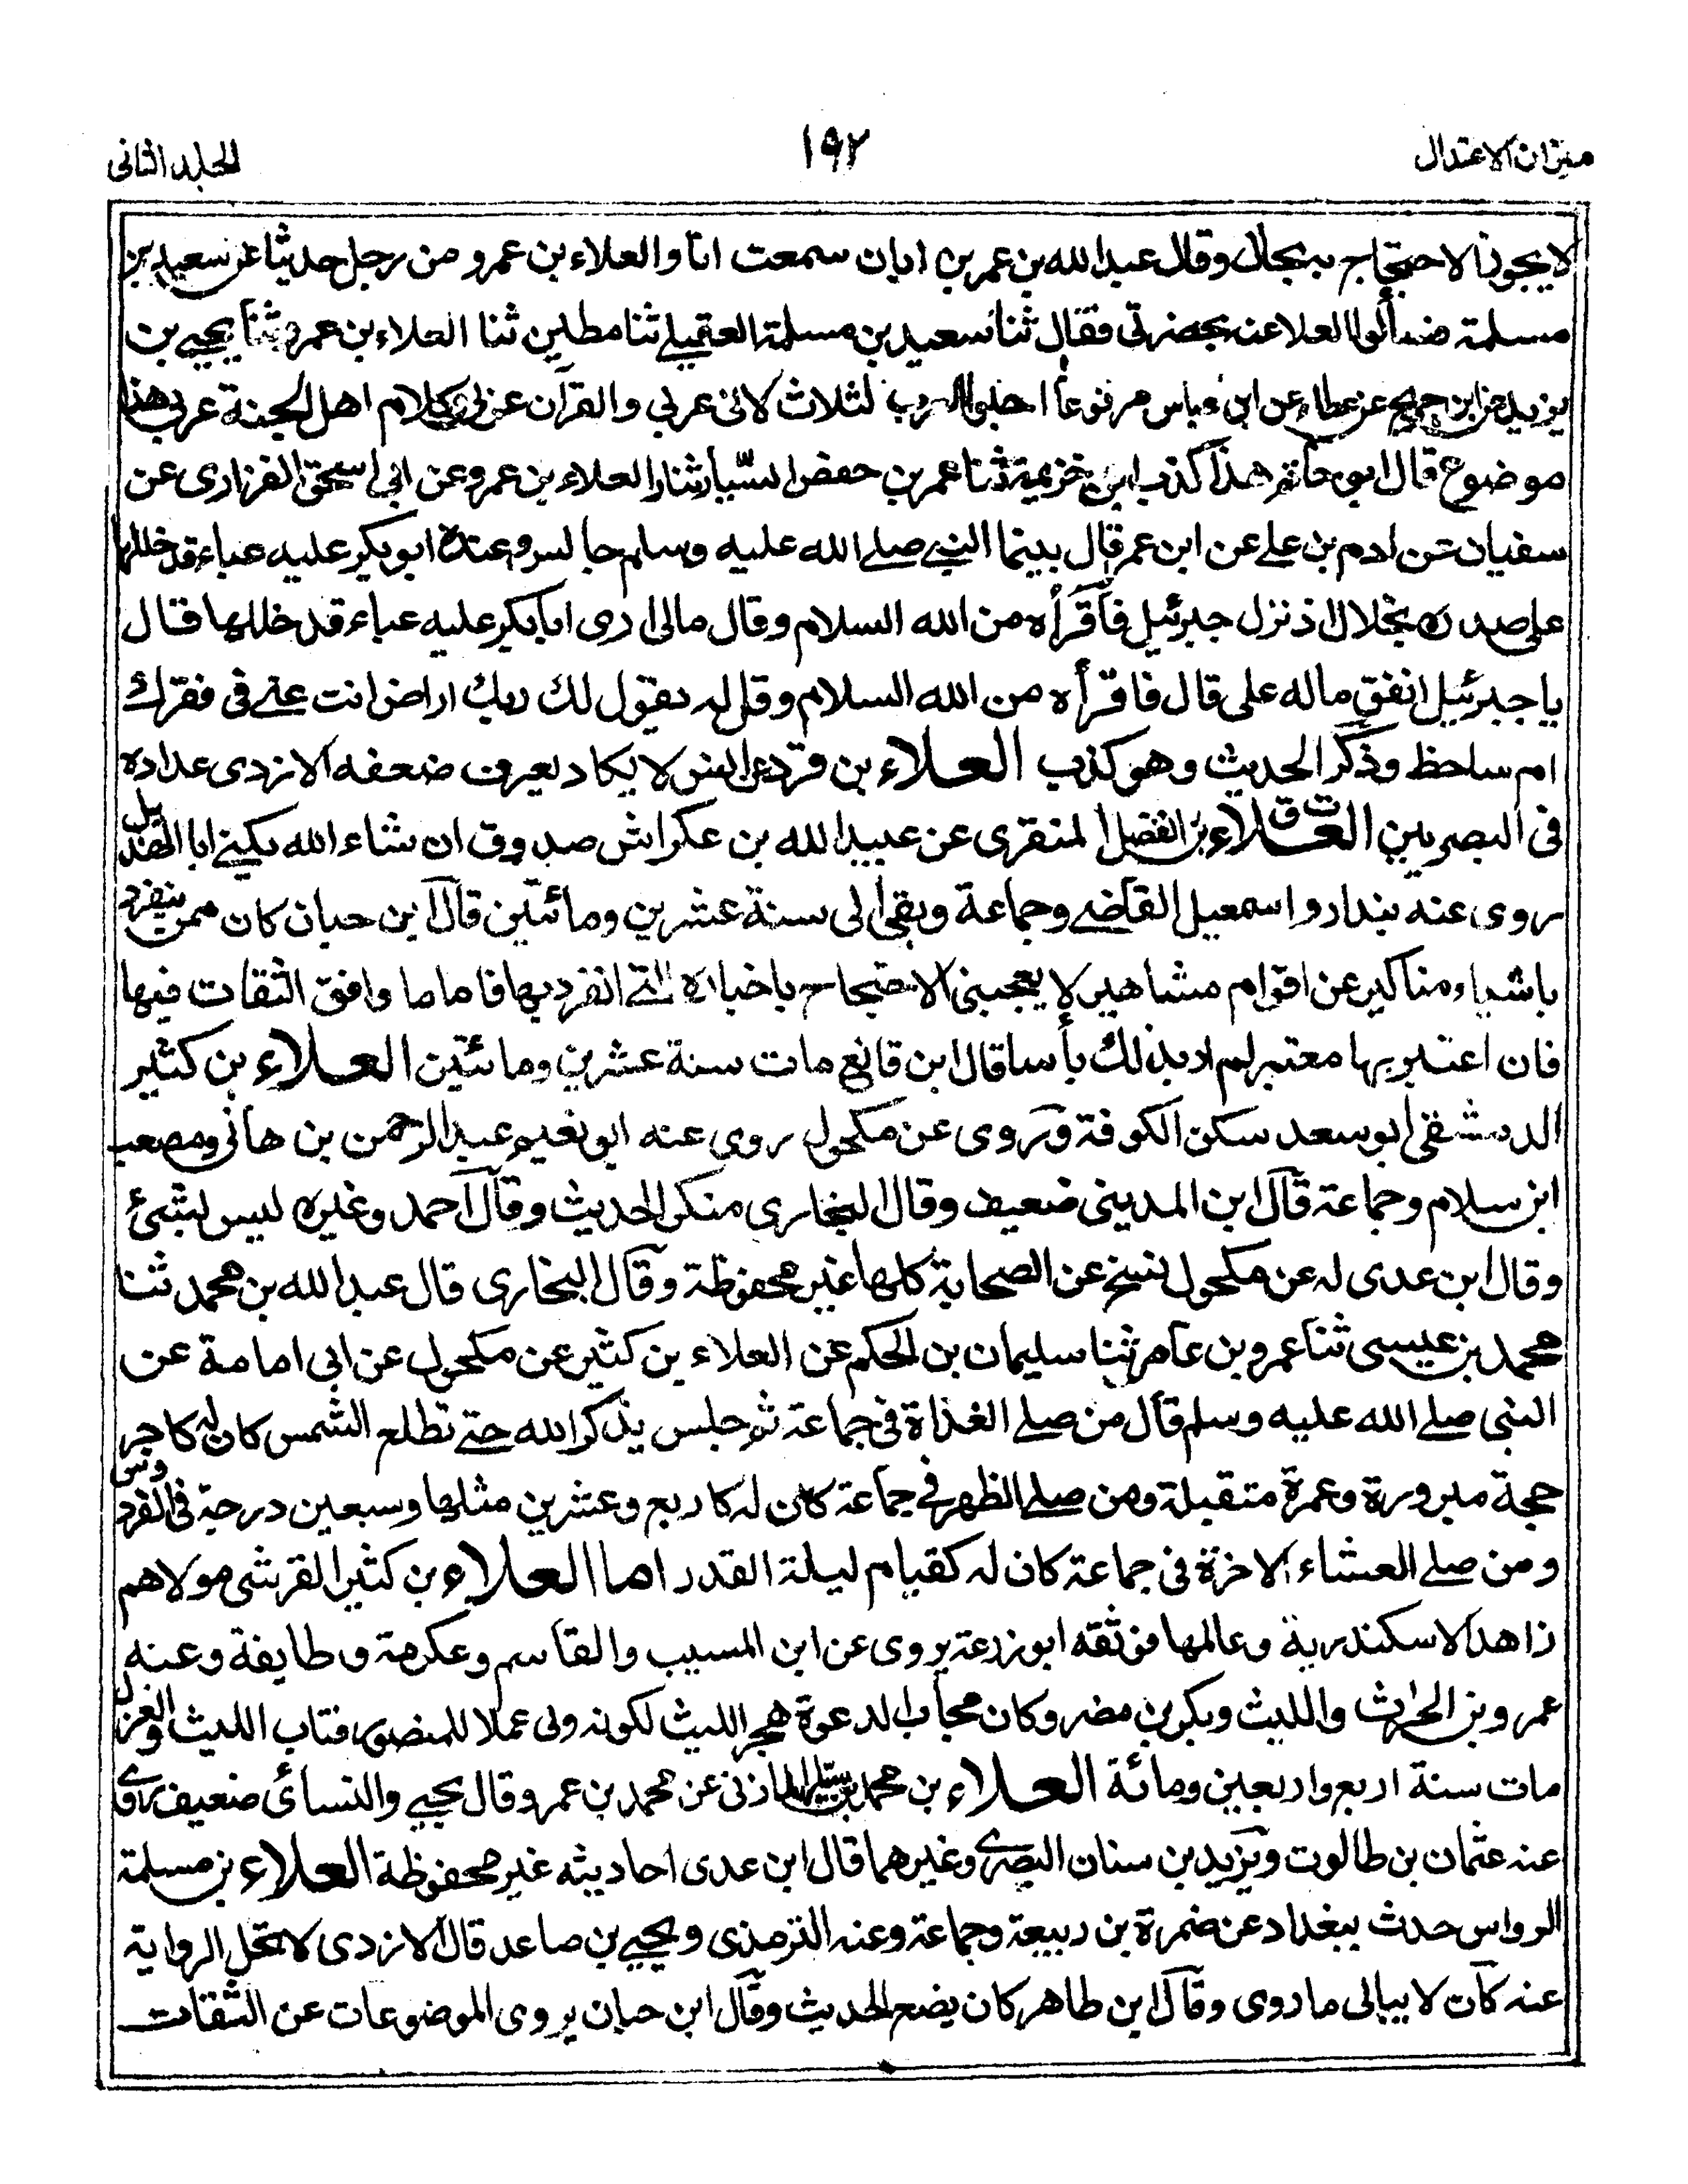 ميزان الاعتدال
١٩٢
المجلد الثانى
لا يجوز الاحتجاج به بحال وقال عبد الله بن عمر بن ابان سمعت انا والعلاء بن عمرو من رجل حديثا عن سعيد بن
مسلمة فسألوا العلا عنه بحضرتى فقال ثنا سعيد بن مسلمة العقيلے ثنا مطين ثنا العلاء بن عمرو ثنا يحيے بن
يزيد عن ابن جريج عن عطاء عن ابن عباس مرفوعا احبوا العرب لثلاث لانى عربي والقرآن عربي وكلام اهل الجنة عربي هذا
موضوع قال ابو حاتم هذا كذب ابن خزيمة ثنا عمر بن حفص الشيبانى ثنا العلاء بن عمرو عن ابي اسحق الفزارى عن
سفيان عن ادم بن علے عن ابن عمر قال بينما النبے صلے الله عليه وسلم جالس وعنده ابو بكر عليه عباء قد خللها
على صدره بخلال اذ نزل جبرئيل فاقرأه من الله السلام وقال مالى ارى ابا بكر عليه عباء قد خللها قال
يا جبرئيل انفق ماله على قال فاقرأه من الله السلام وقل له يقول لك ربك اراض انت عنے فى فقرك
ام ساخط وذكر الحديث وهو كذب العلاء بن فرد عن انس لا يكاد يعرف ضعفه الازدى عداده
فى البصريين العلاء بن الفضل المنقرى عن عبيد الله بن عكراش صدوق ان شاء الله يكنے ابا الهذيل
روى عنه بندار واسمعيل القاضے وجماعة وبقى الى سنة عشرين ومائتين قال ابن حبان كان ممن ينفرد
باشياء مناكير عن اقوام مشاهير لا يعجبنى الاحتجاج باخباره التے انفرد بها فاما ما وافق الثقات فيها
فان اعتبر بها معتبر لم ار بذلك بأسا قال ابن قانع مات سنة عشرين ومائتين العلاء بن كثير
الدمشقى ابو سعد سكن الكوفة وروى عن مكحول روى عنه ابو نعيم عبد الرحمن بن هانى ومصعب
ابن سلام وجماعة قال ابن المدينى ضعيف وقال البخارى منكر الحديث وقال احمد وغيره ليس بشئ
وقال ابن عدى له عن مكحول نسخ عن الصحابة كلها غير محفوظة وقال البخارى قال عبد الله بن محمد ثنا
محمد بن عيسى ثنا عمرو بن عامر ثنا سليمان بن الحكم عن العلاء بن كثير عن مكحول عن ابى امامة عن
النبى صلے الله عليه وسلم قال من صلے الغداة فى جماعة ثم جلس يذكر الله حتے تطلع الشمس كان له كاجر
حجة مبرورة وعمرة متقبلة ومن صلے الظهر فے جماعة كان له كاربع وعشرين مثلها وسبعين درجة فى الفردوس
ومن صلے العشاء الاخرة فى جماعة كان له كقيام ليلة القدر اما العلاء بن كثير القرشى مولاهم
زاهد الاسكندرية وعالمها فوثقه ابو زرعة يروى عن ابن المسيب والقاسم وعكرمة وطايفة وعنه
عمرو بن الحرث والليث وبكر بن مضر وكان مجاب الدعوة هجر الليث لكونه ولى عملا للمنصور فتاب الليث والعزل
مات سنة اربع واربعين ومائة العلاء بن محمد بن سيار المازنى عن محمد بن عمرو قال يحيے والنسائى ضعيف روى
عنه عثمان بن طالوت ويزيد بن سنان البصرے وغيرهما قال ابن عدى احاديثه غير محفوظة العلاء بن مسلمة
الرواس حدث ببغداد عن ضمرة بن ربيعة وجماعة وعنه الترمذى ويحيے بن صاعد قال الازدى لا تحل الرواية
عنه كان لا يبالى ما روى وقال ابن طاهر كان يضع الحديث وقال ابن حبان يروى الموضوعات عن الثقات